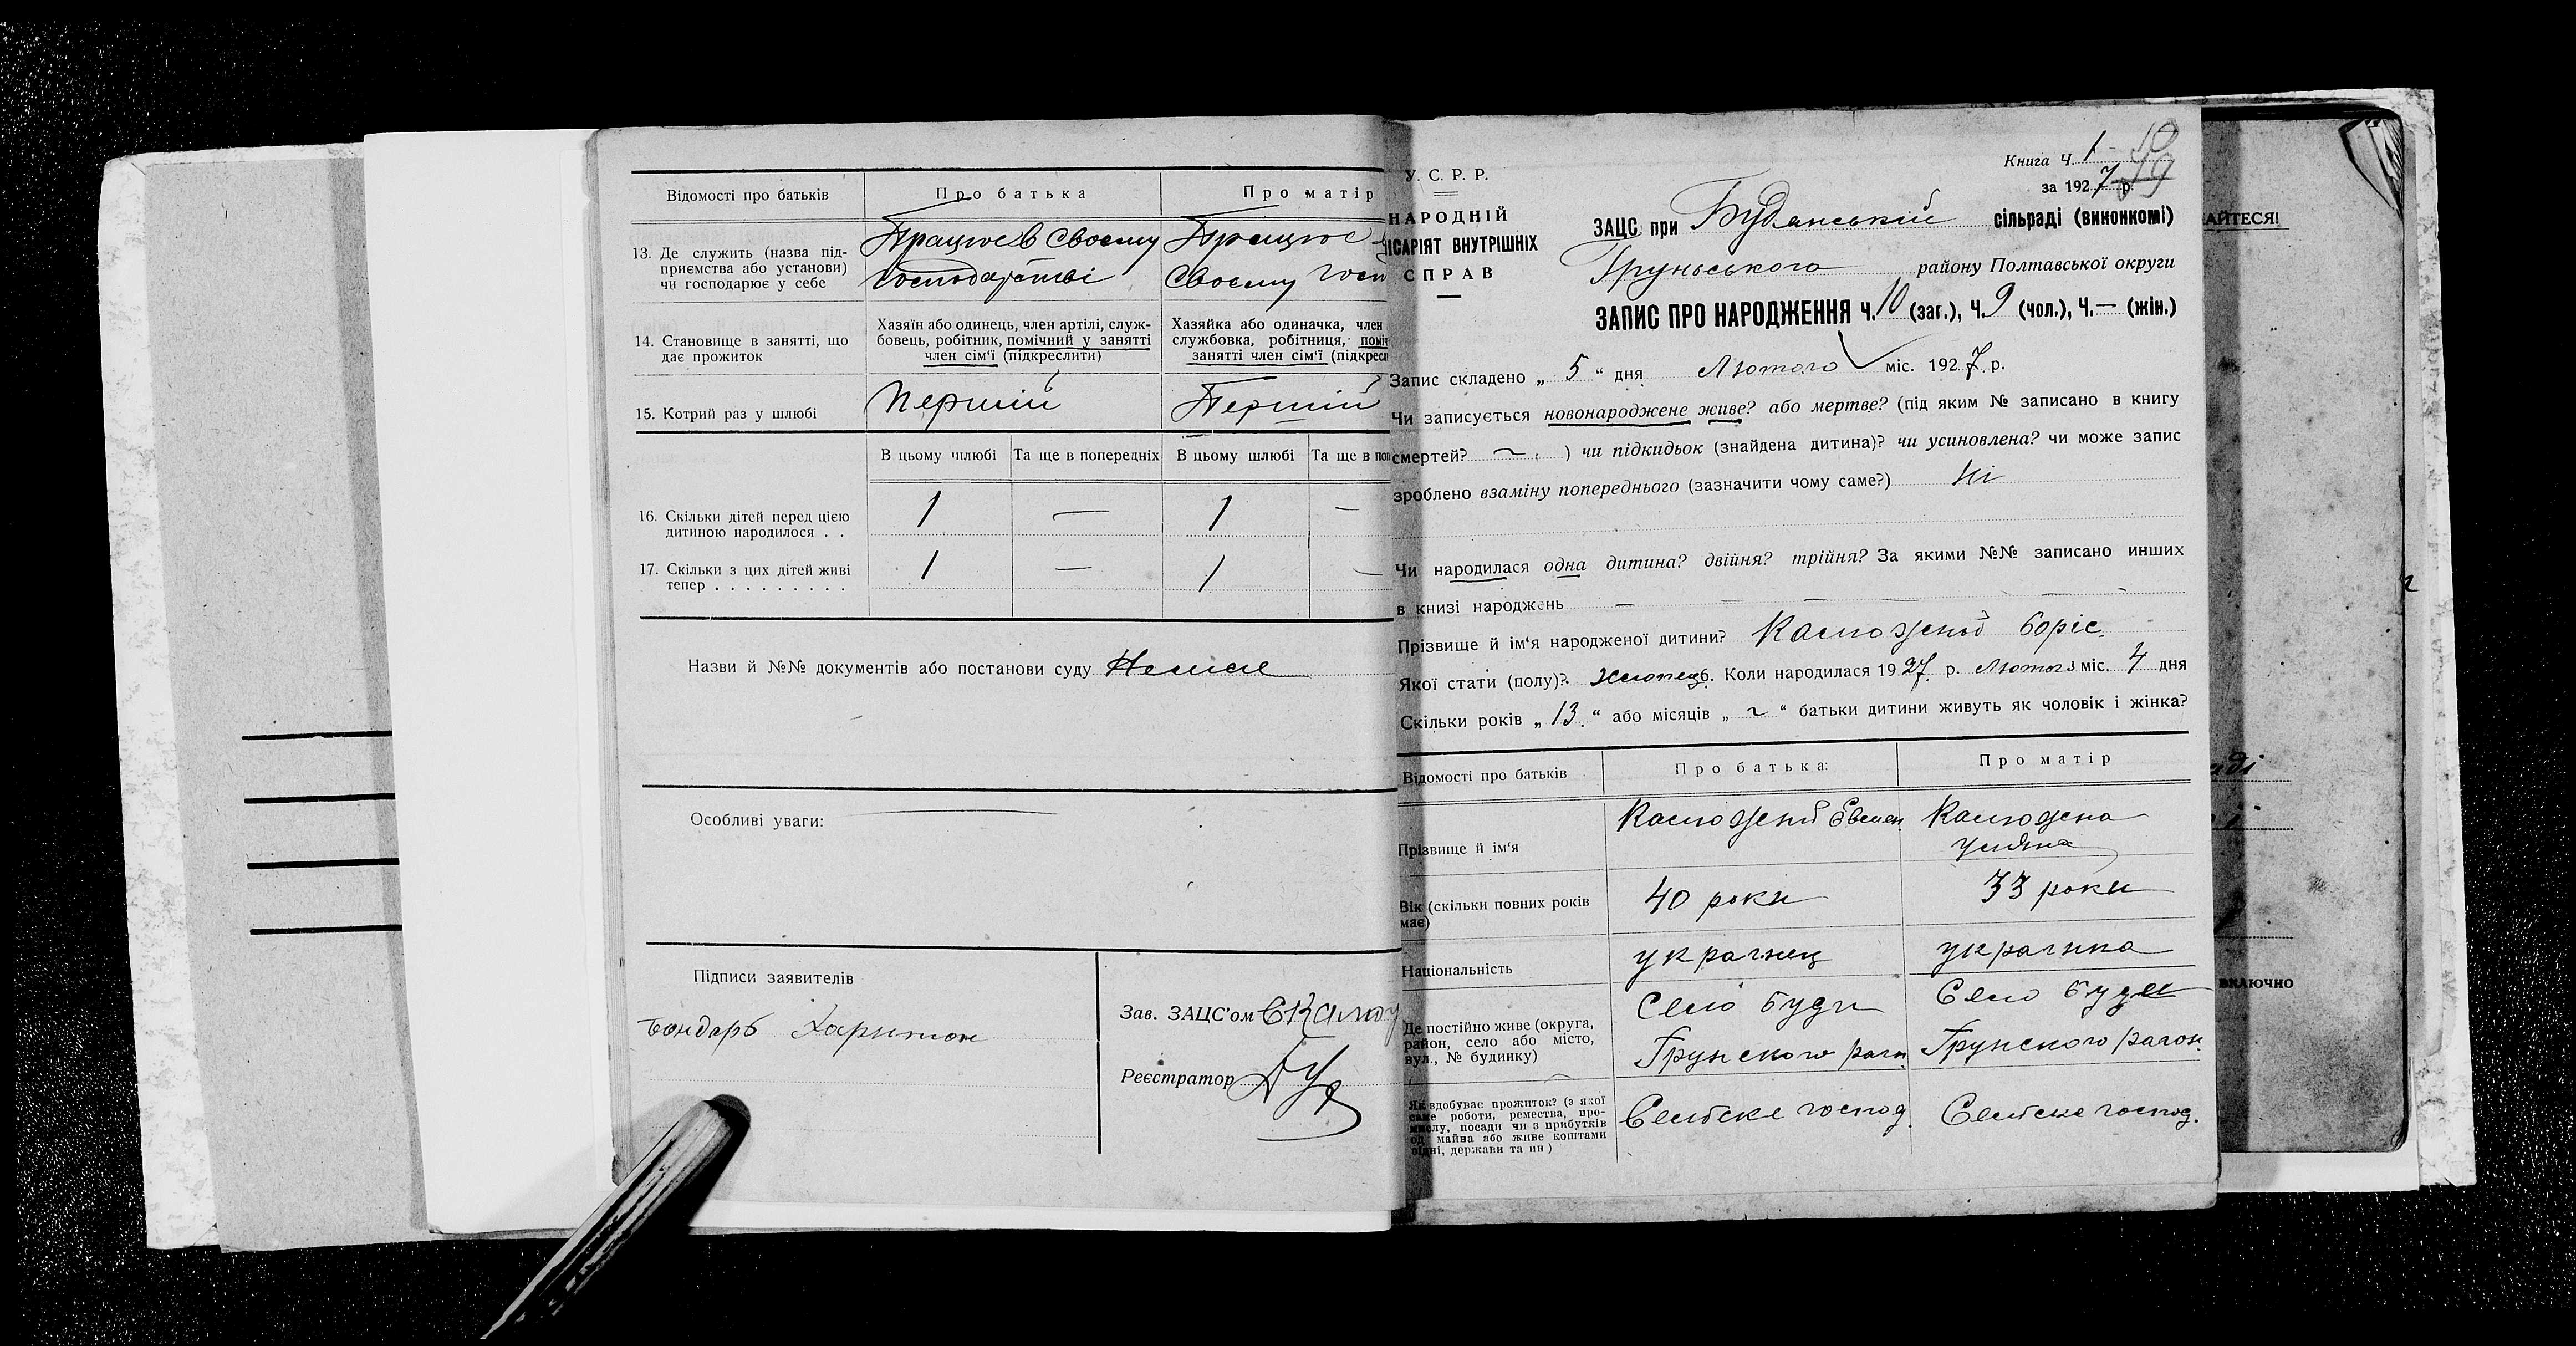 Відомості про батьків
Про батька
Про матір
13. Де служить (назва під-
приємства або установи)
чи господарює у себе
Працює в своєму
господарстві
Працює
своєму госп
14. Становище в занятті, що
дає прожиток
Хазяїн або одинець, член артілі, служ-
бовець, робітник, помічний у занятті
член сім'ї (підкреслити)
Хазяйка або одиначка, член
службовка, робітниця, поміч
занятті член сім'ї (підкресл
15. Котрий раз у шлюбі
Перший
Перший
В цьому шлюбі
Та ще в попередніх
В цьому шлюбі
Та ще в поп
16. Скільки дітей перед цією
дитиною народилося . .
1 — 1 —
17. Скільки з цих дітей живі
тепер . . . . . . . . .
1 — 1 —
Назви й №№ документів або постанови суду Немає
Особливі уваги:
Підписи заявителів
Бондарь Харитон
Зав. ЗАЦС'ом
Реєстратор
У. С. Р. Р.
НАРОДНІЙ
ІСАРІЯТ ВНУТРІШНІХ
СПРАВ
Книга Ч. 1
за 1927 р.
ЗАЦС при Будянській сільраді (виконкомі)
Груньського району Полтавської округи
ЗАПИС ПРО НАРОДЖЕННЯ Ч. 10 (заг.), Ч. 9 (чол.), Ч. — (жін.)
Запис складено „ 5 “ дня Лютого міс. 1927 р.
Чи записується новонароджене живе? або мертве? (під яким № записано в книгу
смертей? ~ ) чи підкидьок (знайдена дитина)? чи усиновлена? чи може запис
зроблено взаміну попереднього (зазначити чому саме?) Ні
Чи народилася одна дитина? двійня? трійня? За якими №№ записано инших
в книзі народжень — — — — —
Прізвище й ім'я народженої дитини? Борис
Якої стати (полу)? Хлопець. Коли народилася 1927 р. Лютого міс. 4 дня
Скільки років „ 13 “ або місяців „ ~ “ батьки дитини живуть як чоловік і жінка?
Відомості про батьків
Про батька:
Про матір
Прізвище й ім'я
Вік (скільки повних років
має)
40 роки
33 роки
Національність
украінец
украінка
Де постійно живе (округа,
район, село або місто,
вул., № будинку)
Село Буди
Грунского раіон.
Село Буди
Грунского раіон.
Як здобуває прожиток? (з якої
саме роботи, ремества, про-
мислу, посади чи з прибутків
од майна або живе коштами
рідні, держави та ин)
Сельске господ.
Сельске господ.
АЙТЕСЯ!
ВКЛЮЧНО